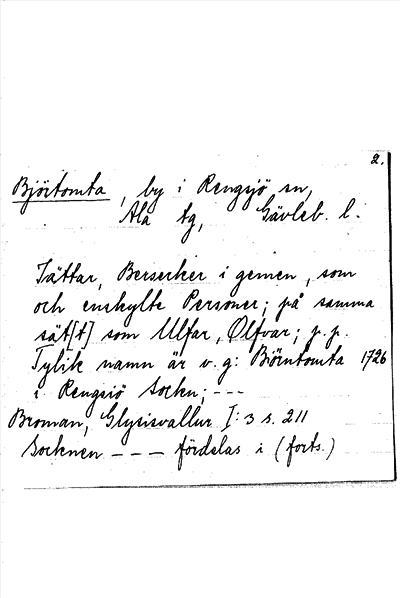 2.
Björtomta, by i Rengsjö sn,
Ala tg, Gävleb. l.
Tättar, Berserker i gemen, som
och enskylte Personer; på samma
sät[t] som Ulfar, Ølfvar; p. p.
Tylik namn är v. g: Biörntomta 1726
i Rengsiö Sockn; ---
Broman, Glysisvallur I: 3 s. 211
Socknen --- fördelas i (forts.)